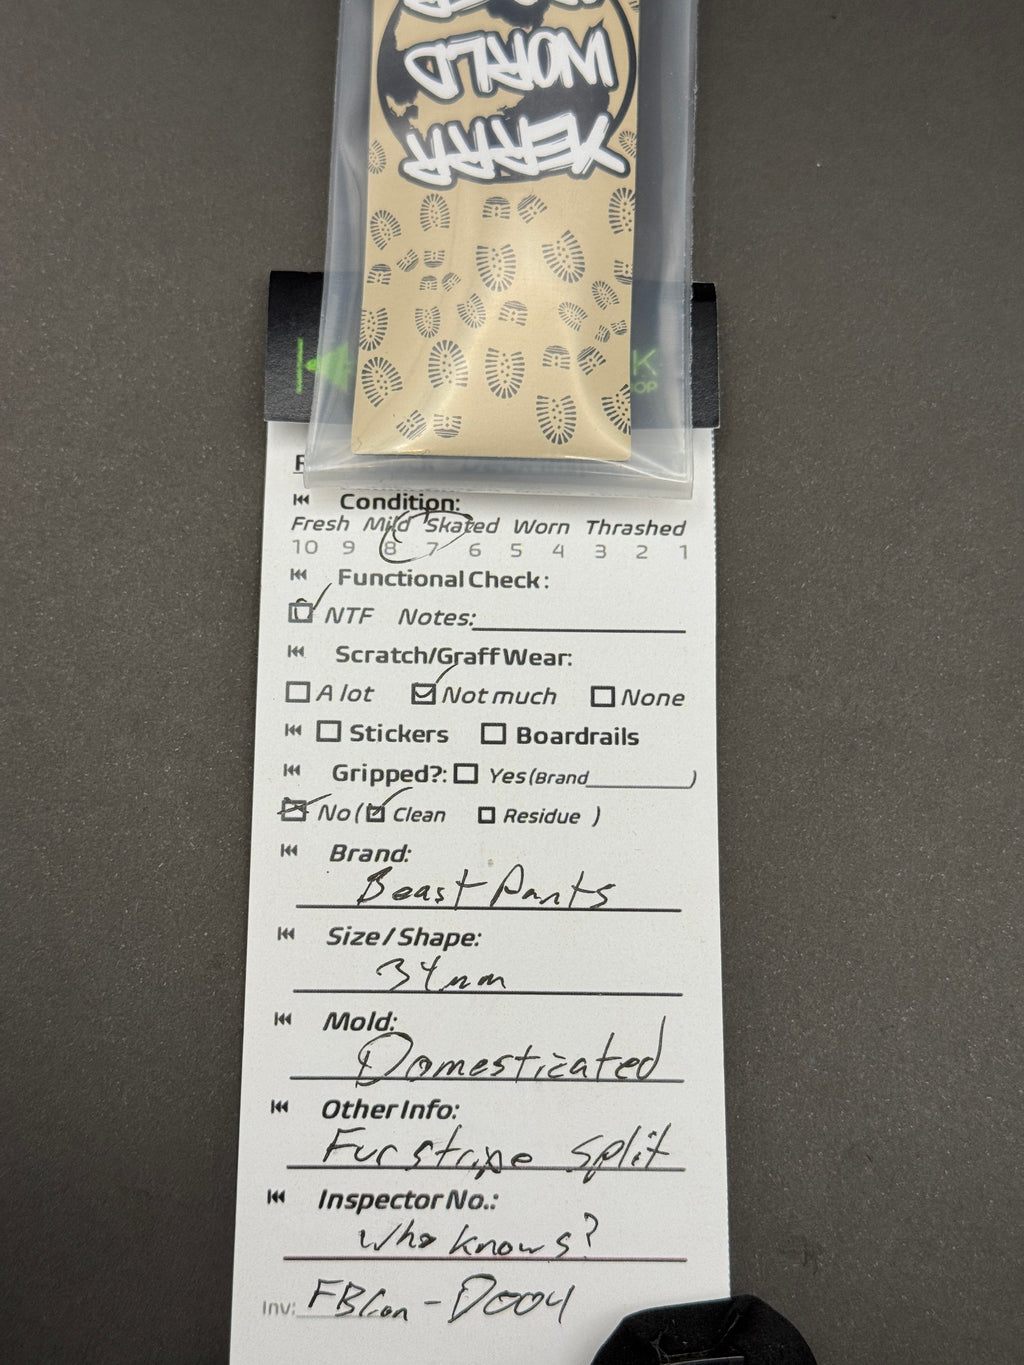 WORLD
YERRR
K
POP
Condition:
Fresh Mild Skated Worn Thrashed
10 9 8 7 6 5 4 3 2 1
Functional Check:
NTF Notes:
Scratch/Graff Wear:
A lot Not much None
Stickers Boardrails
Gripped?: Yes (Brand )
No ( Clean Residue )
Brand:
Beast Pants
Size/Shape:
34mm
Mold:
Domesticated
Other Info:
Fur stripe split
Inspector No.:
Who knows?
Inv: FBCon-D004